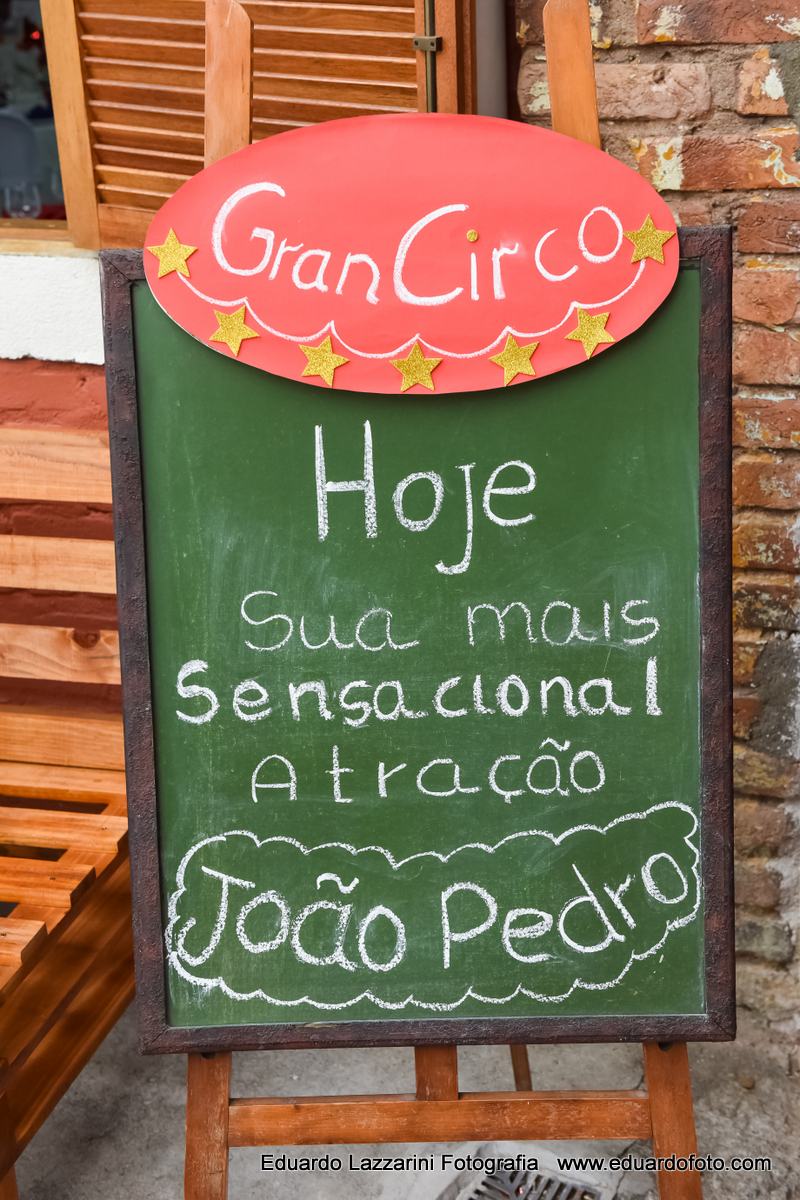 Gran Circo
Hoje
Sua mais
Sensacional
Atração
João Pedro
Eduardo Lazzarini Fotografia www.eduardofoto.com